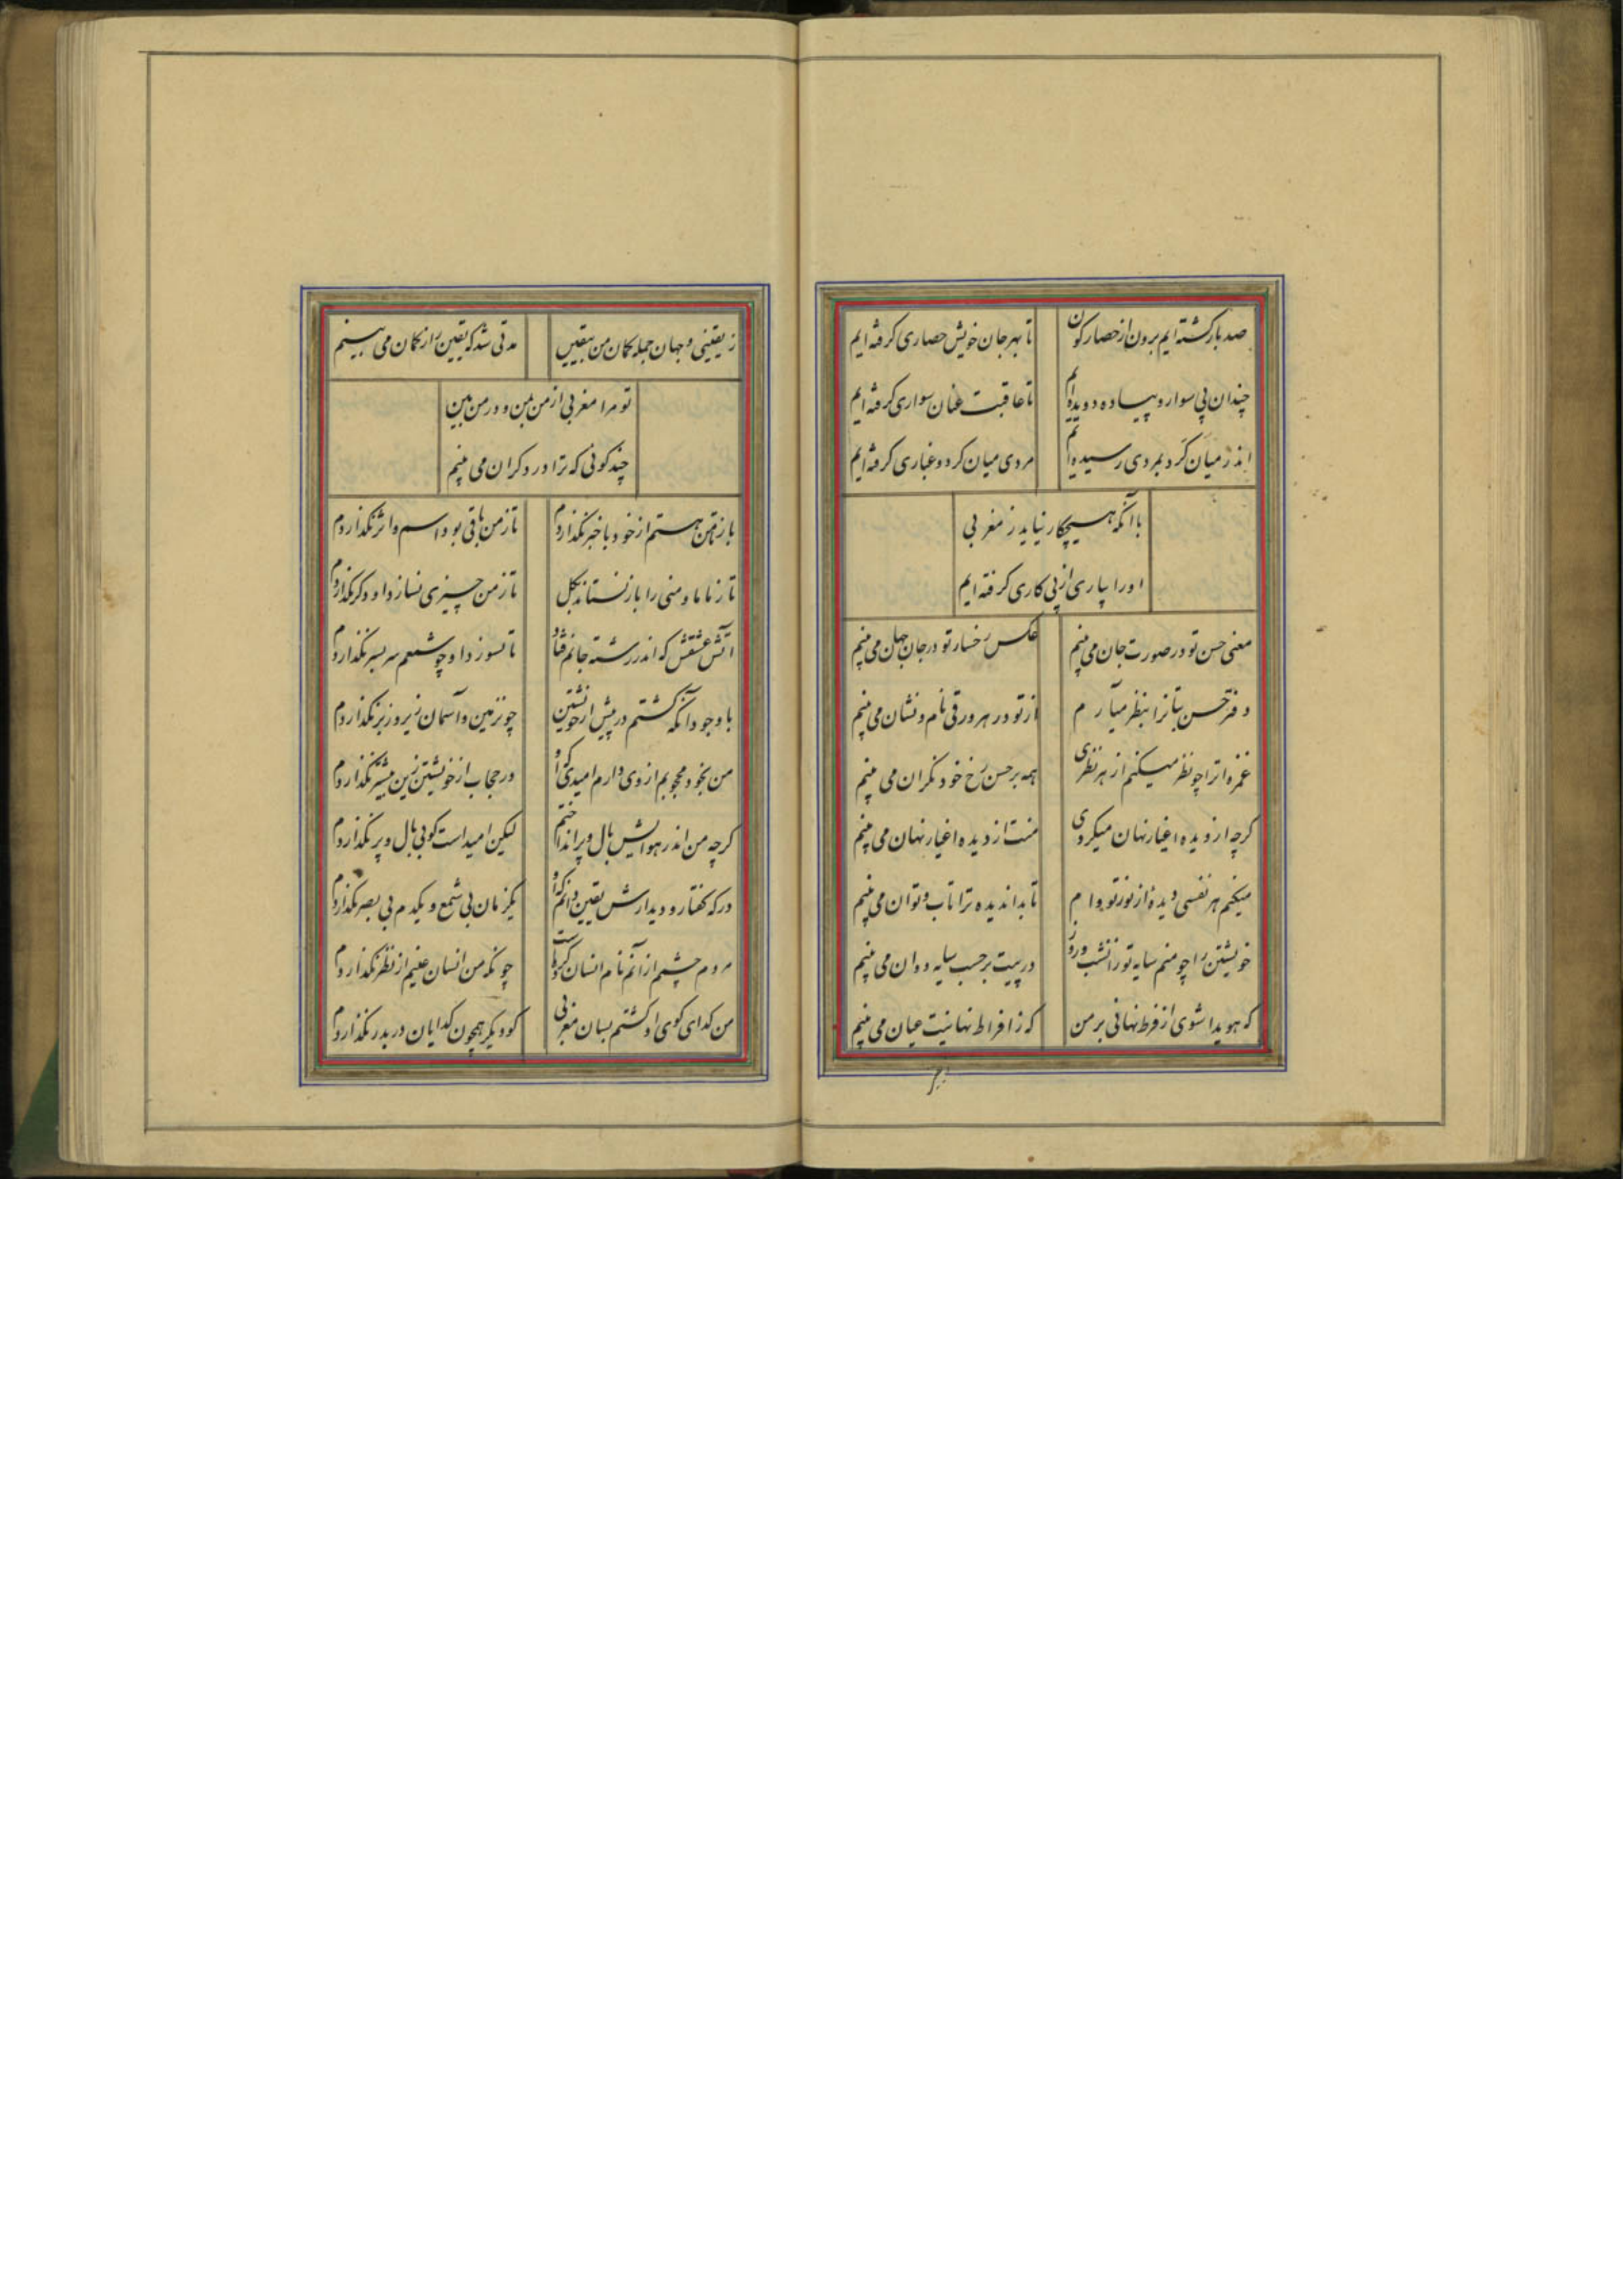 صد بار گشته ایم برون از حصار کون
تا بهر جان خویش حصاری گرفته ایم
چندان پی سوار و پیاده دویده ایم
تا عاقبت عنان سواری گرفته ایم
اندر میان گرد بمردی رسیده ایم
مردی میان گرد و غباری گرفته ایم
با آنکه هیچکار نیاید ز مغربی
او را پیاری از پی کاری گرفته ایم
معنی حسن تو در صورت جان می بینم
عکس رخسار تو در جان جهان می بینم
دفتر حسن بتانرا بنظر میآرم
از تو در هر ورقی نام و نشان می بینم
غمزه اترا چو نظر میکنم از هر نظری
همه بر حسن رخ خود نگران می بینم
گرچه از دیده اغیار نهان میگردی
منت از دیده اغیار نهان می بینم
میکنم هر نفسی دیده از نور تو وام
تا بدان دیده ترا تاب و توان می بینم
خویشتن را چو منم سایه تو زانشب و روز
در پیت بر حسب سایه دوان می بینم
که هویدا شوی از فرط نهانی بر من
که ز افراط نهانیت عیان می بینم
ز یقینی و جهان جمله گمان من بیقین
مدتی شد که یقین را ز گمان می بینم
تو مرا مغربی از من بین و در من بین
چند گوئی که ترا در دگران می بینم
باز من هستم از خود با خبر نگذاردم
تا ز من باقی بود اسم و اثر نگذاردم
تا ز ما ما و منی را باز نستاند بکل
تا ز من چیزی نسازد او دگر نگذاردم
آتش عشقش که اندر رشته جانم فتاد
تا نسوزد او چو شمعم سر بسر نگذاردم
با وجود آنکه گشتم در پیش از خویشتن
چون زمین و آسمان زیر و زبر نگذاردم
من بخود محجوبم از وی دارم امیدی کو
در حجاب از خویشتن زین بیشتر نگذاردم
گرچه من اندر هوایش بال و پر انداختم
لیکن امید است کو بی بال و پر نگذاردم
درکه گفتار و دیدارش یقین دانم که او
یکزمان بی شمع و یکدم بی بصر نگذاردم
مردم چشم از آنم نام انسان کرده است
چونکه من انسان عینم از نظر نگذاردم
من گدای کوی او گشتم بسان مغربی
کو دیگر همچون گدایان در بدر نگذاردم